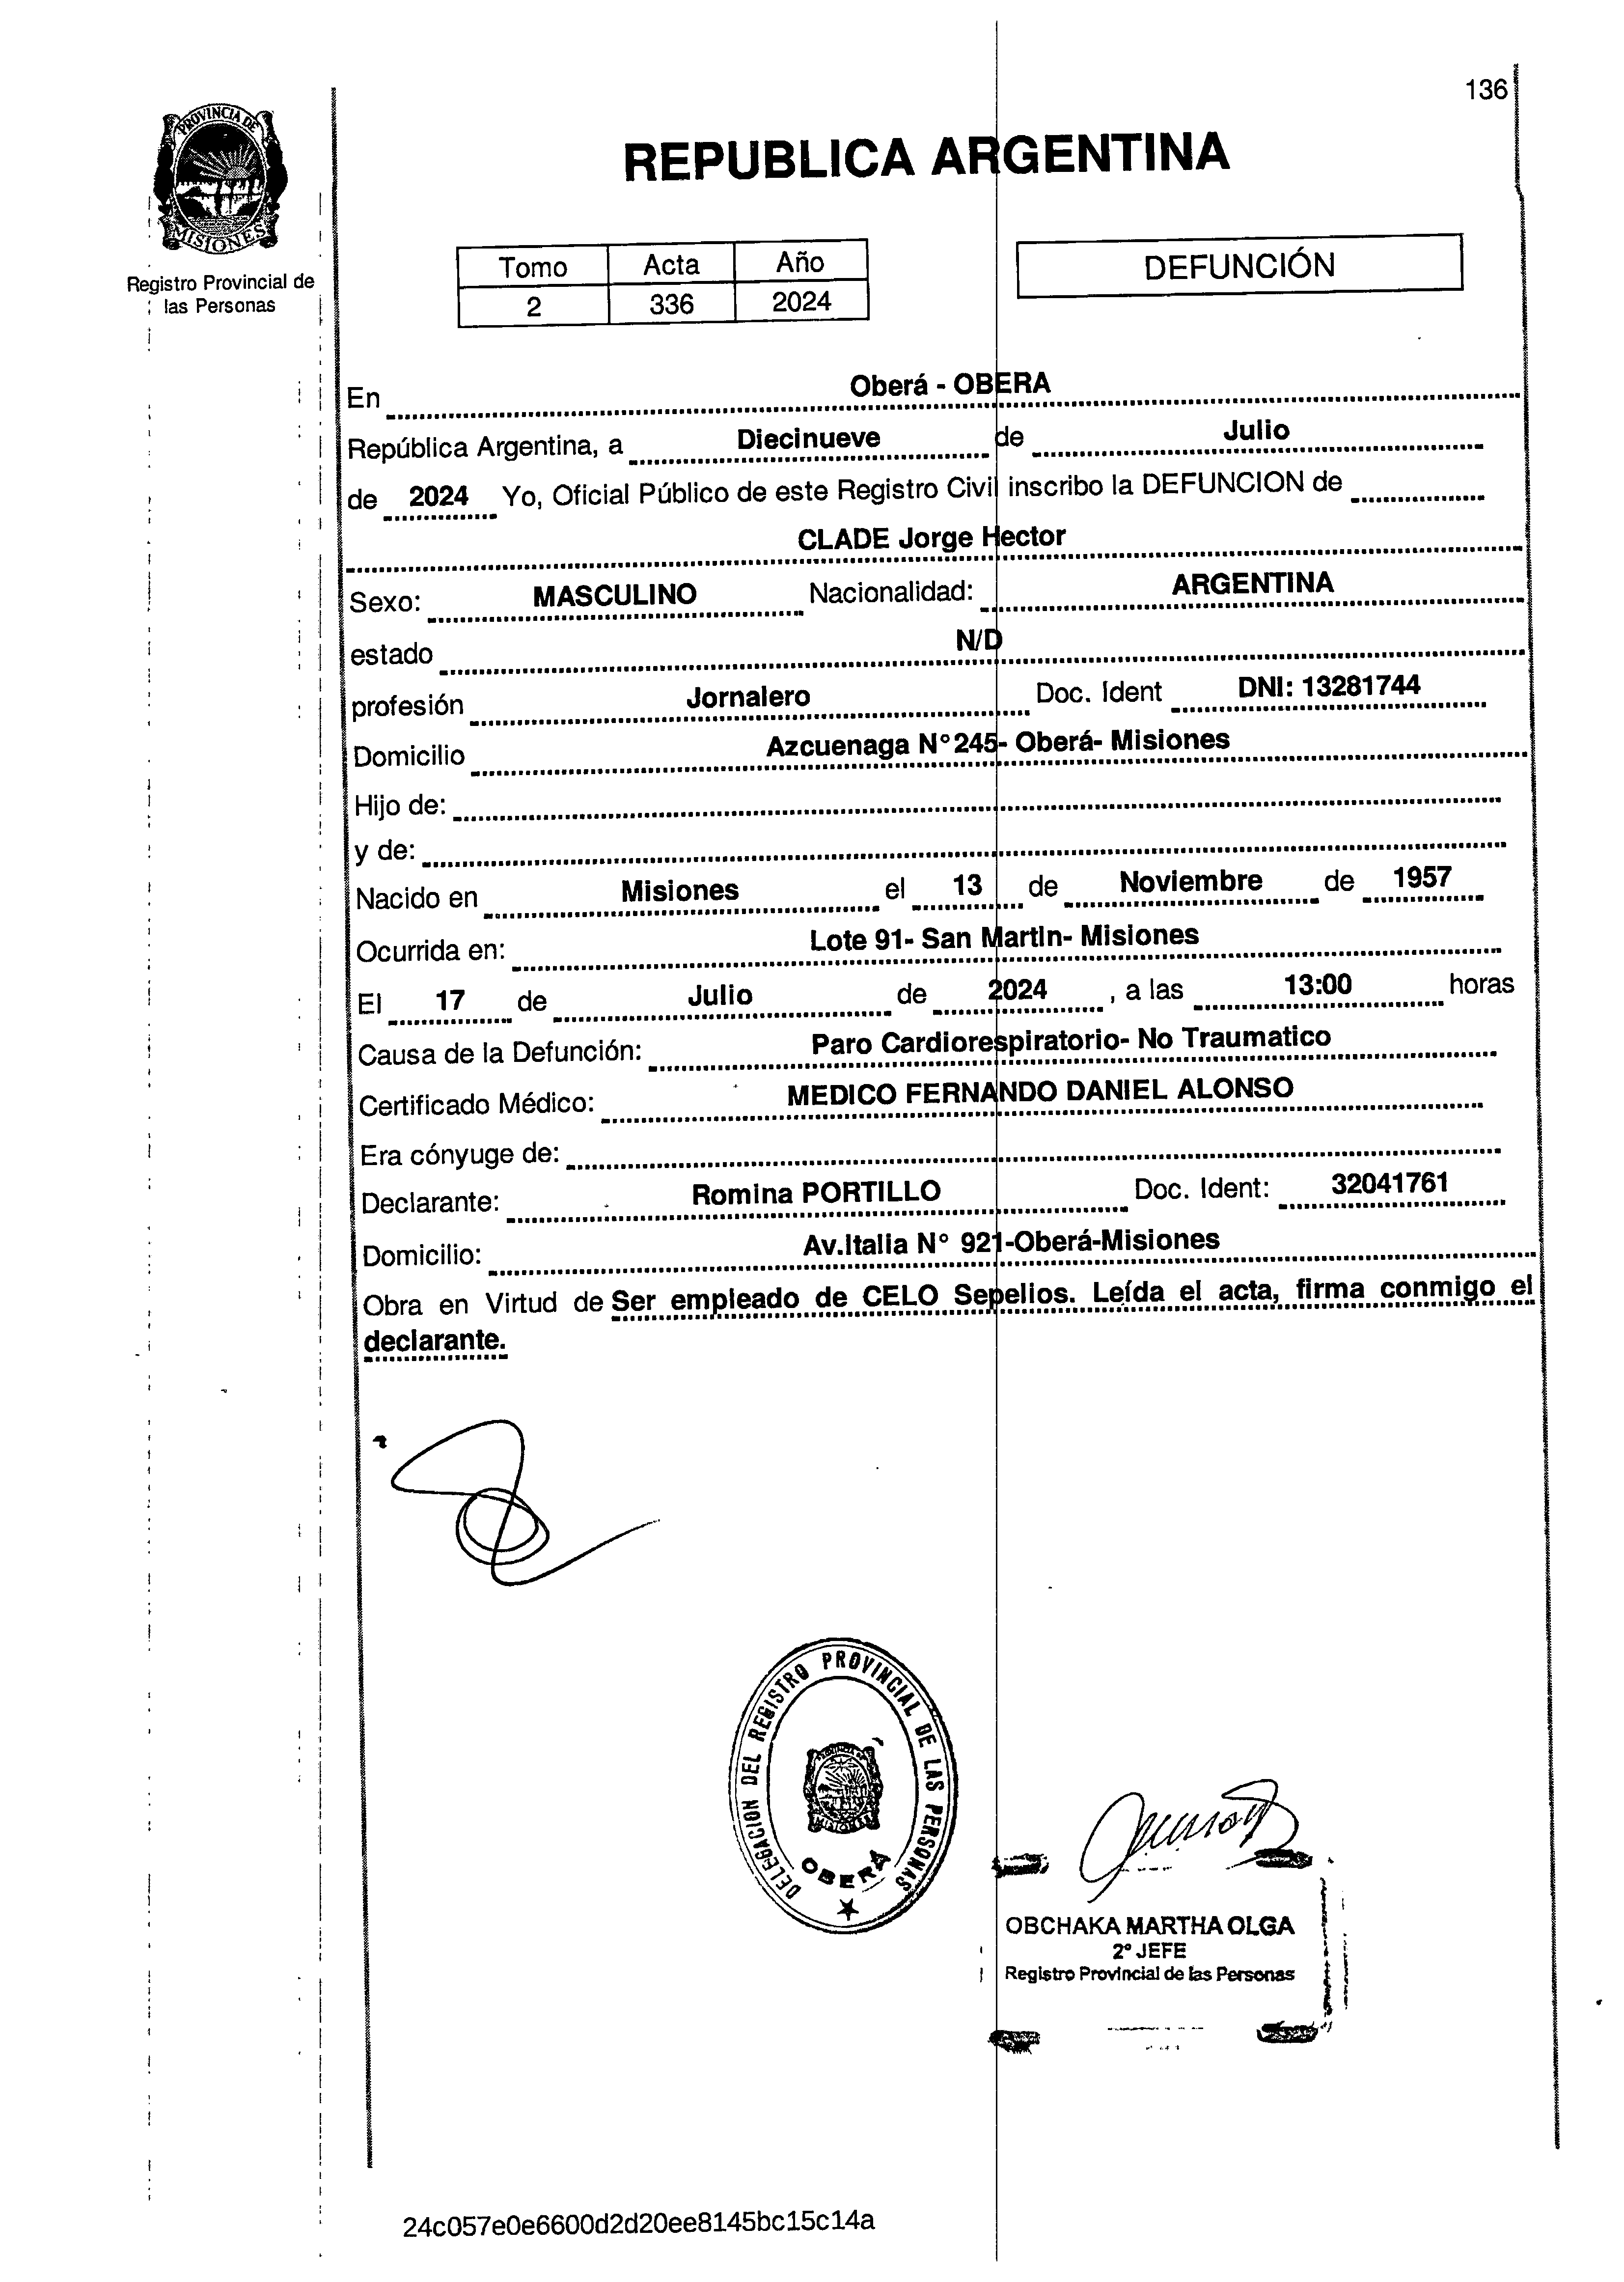 136
PROVINCIA DE
MISIONES
Registro Provincial de
las Personas
REPUBLICA ARGENTINA
Tomo Acta Año
2 336 2024
DEFUNCIÓN
En Oberá - OBERA
República Argentina, a Diecinueve de Julio
de 2024 Yo, Oficial Público de este Registro Civil inscribo la DEFUNCION de
CLADE Jorge Hector
Sexo: MASCULINO Nacionalidad: ARGENTINA
estado N/D
profesión Jornalero Doc. Ident DNI: 13281744
Domicilio Azcuenaga N°245- Oberá- Misiones
Hijo de:
y de:
Nacido en Misiones el 13 de Noviembre de 1957
Ocurrida en: Lote 91- San Martin- Misiones
El 17 de Julio de 2024 , a las 13:00 horas
Causa de la Defunción: Paro Cardiorespiratorio- No Traumatico
Certificado Médico: MEDICO FERNANDO DANIEL ALONSO
Era cónyuge de:
Declarante: Romina PORTILLO Doc. Ident: 32041761
Domicilio: Av.Italia N° 921-Oberá-Misiones
Obra en Virtud de Ser empleado de CELO Sepelios. Leída el acta, firma conmigo el
declarante.
DELEGACION DEL REGISTRO PROVINCIAL DE LAS PERSONAS
MISIONES
OBERÁ
OBCHAKA MARTHA OLGA
2° JEFE
Registro Provincial de las Personas
24c057e0e6600d2d20ee8145bc15c14a